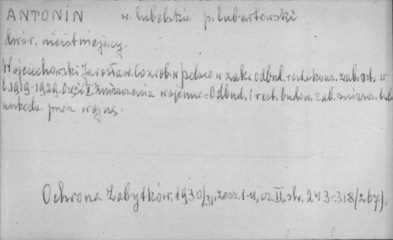 ANTONIN w. lubelskie p. lubartowski
dwór, nieistniejący
Wojciechowski Jarosław. Co zrob. w polsce w zakr. odbud. rest. i kons. zab. szt. w
l. 1919-1929. Część I Zniszczenia wojenne. Odbud. i rest. budow. zab. zniszcz. lub
uszkodz. przez wojnę.
Ochrona Zabytków. 1930/31, zesz. 1-4, cz. II, str. 243-318/267/.